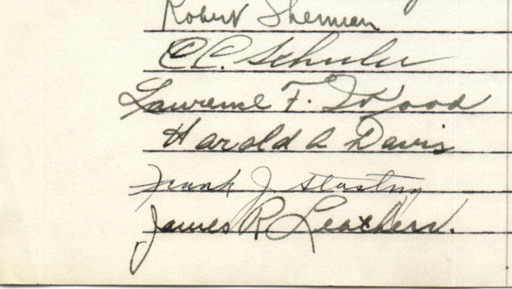 Robert Sherman
C.C. Schuler
Lawrence F. Wood
Harold A Davis
Frank J
James R Leathers.